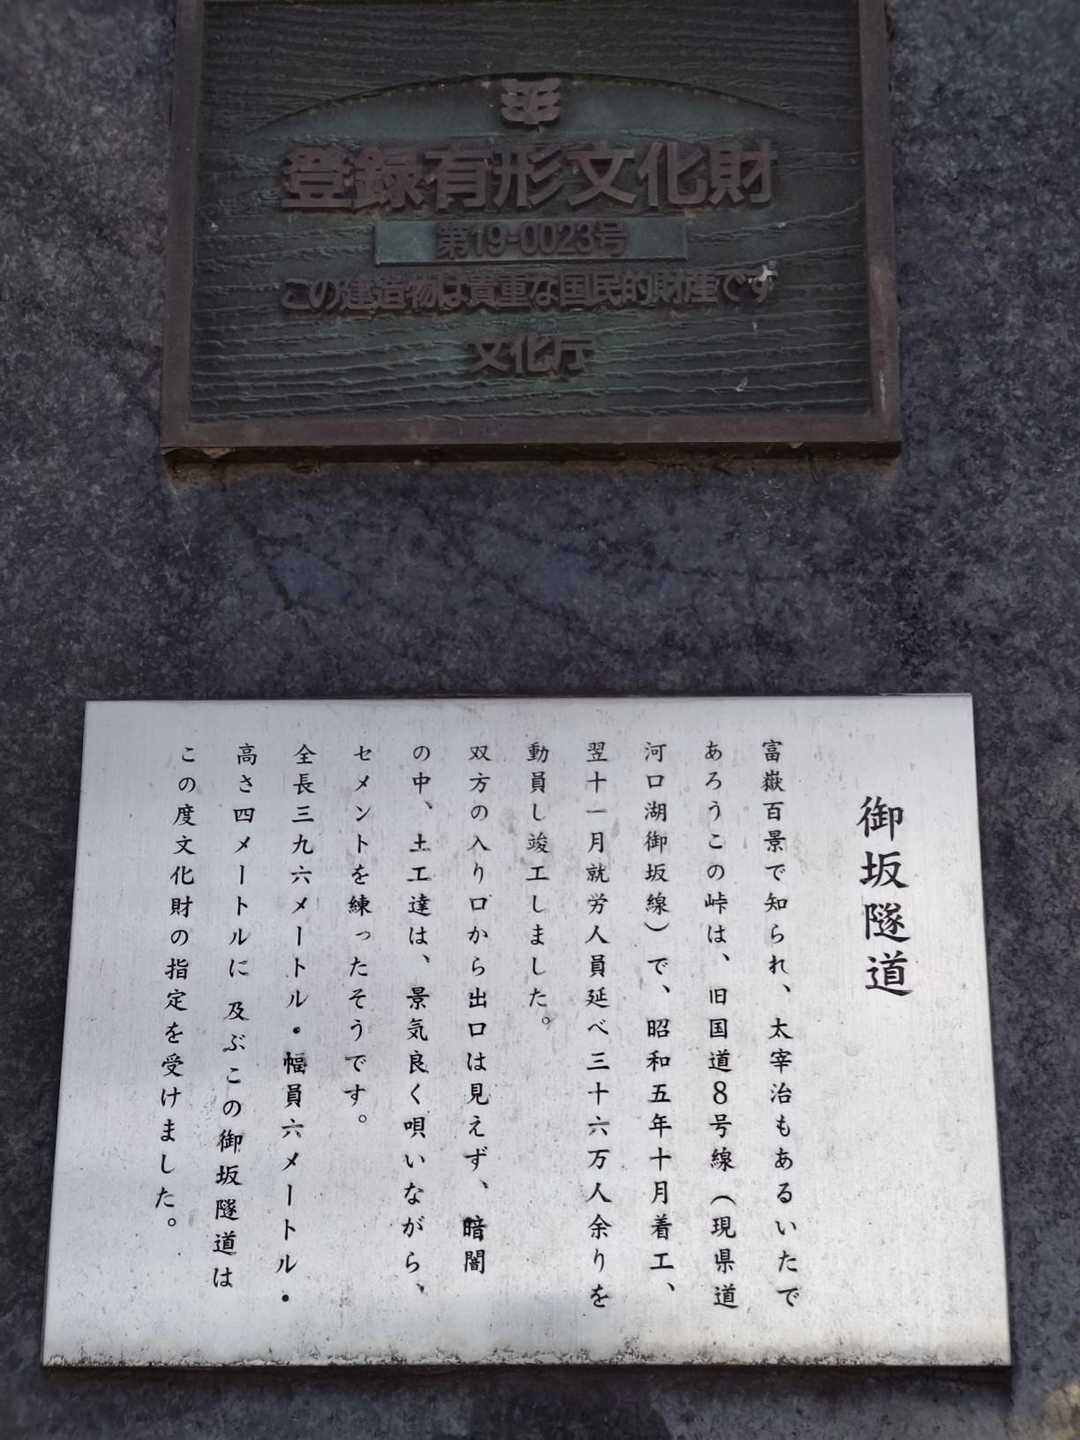 登録有形文化財
第19-0023号
この建造物は貴重な国民的財産です
文化庁
御坂隧道
富嶽百景で知られ、太宰治もあるいたで
あろうこの峠は、旧国道8号線（現県道
河口湖御坂線）で、昭和五年十月着工、
翌十一月就労人員延べ三十六万人余りを
動員し竣工しました。
双方の入り口から出口は見えず、暗闇
の中、土工達は、景気良く唄いながら、
セメントを練ったそうです。
全長三九六メートル・幅員六メートル・
高さ四メートルに及ぶこの御坂隧道は
この度文化財の指定を受けました。